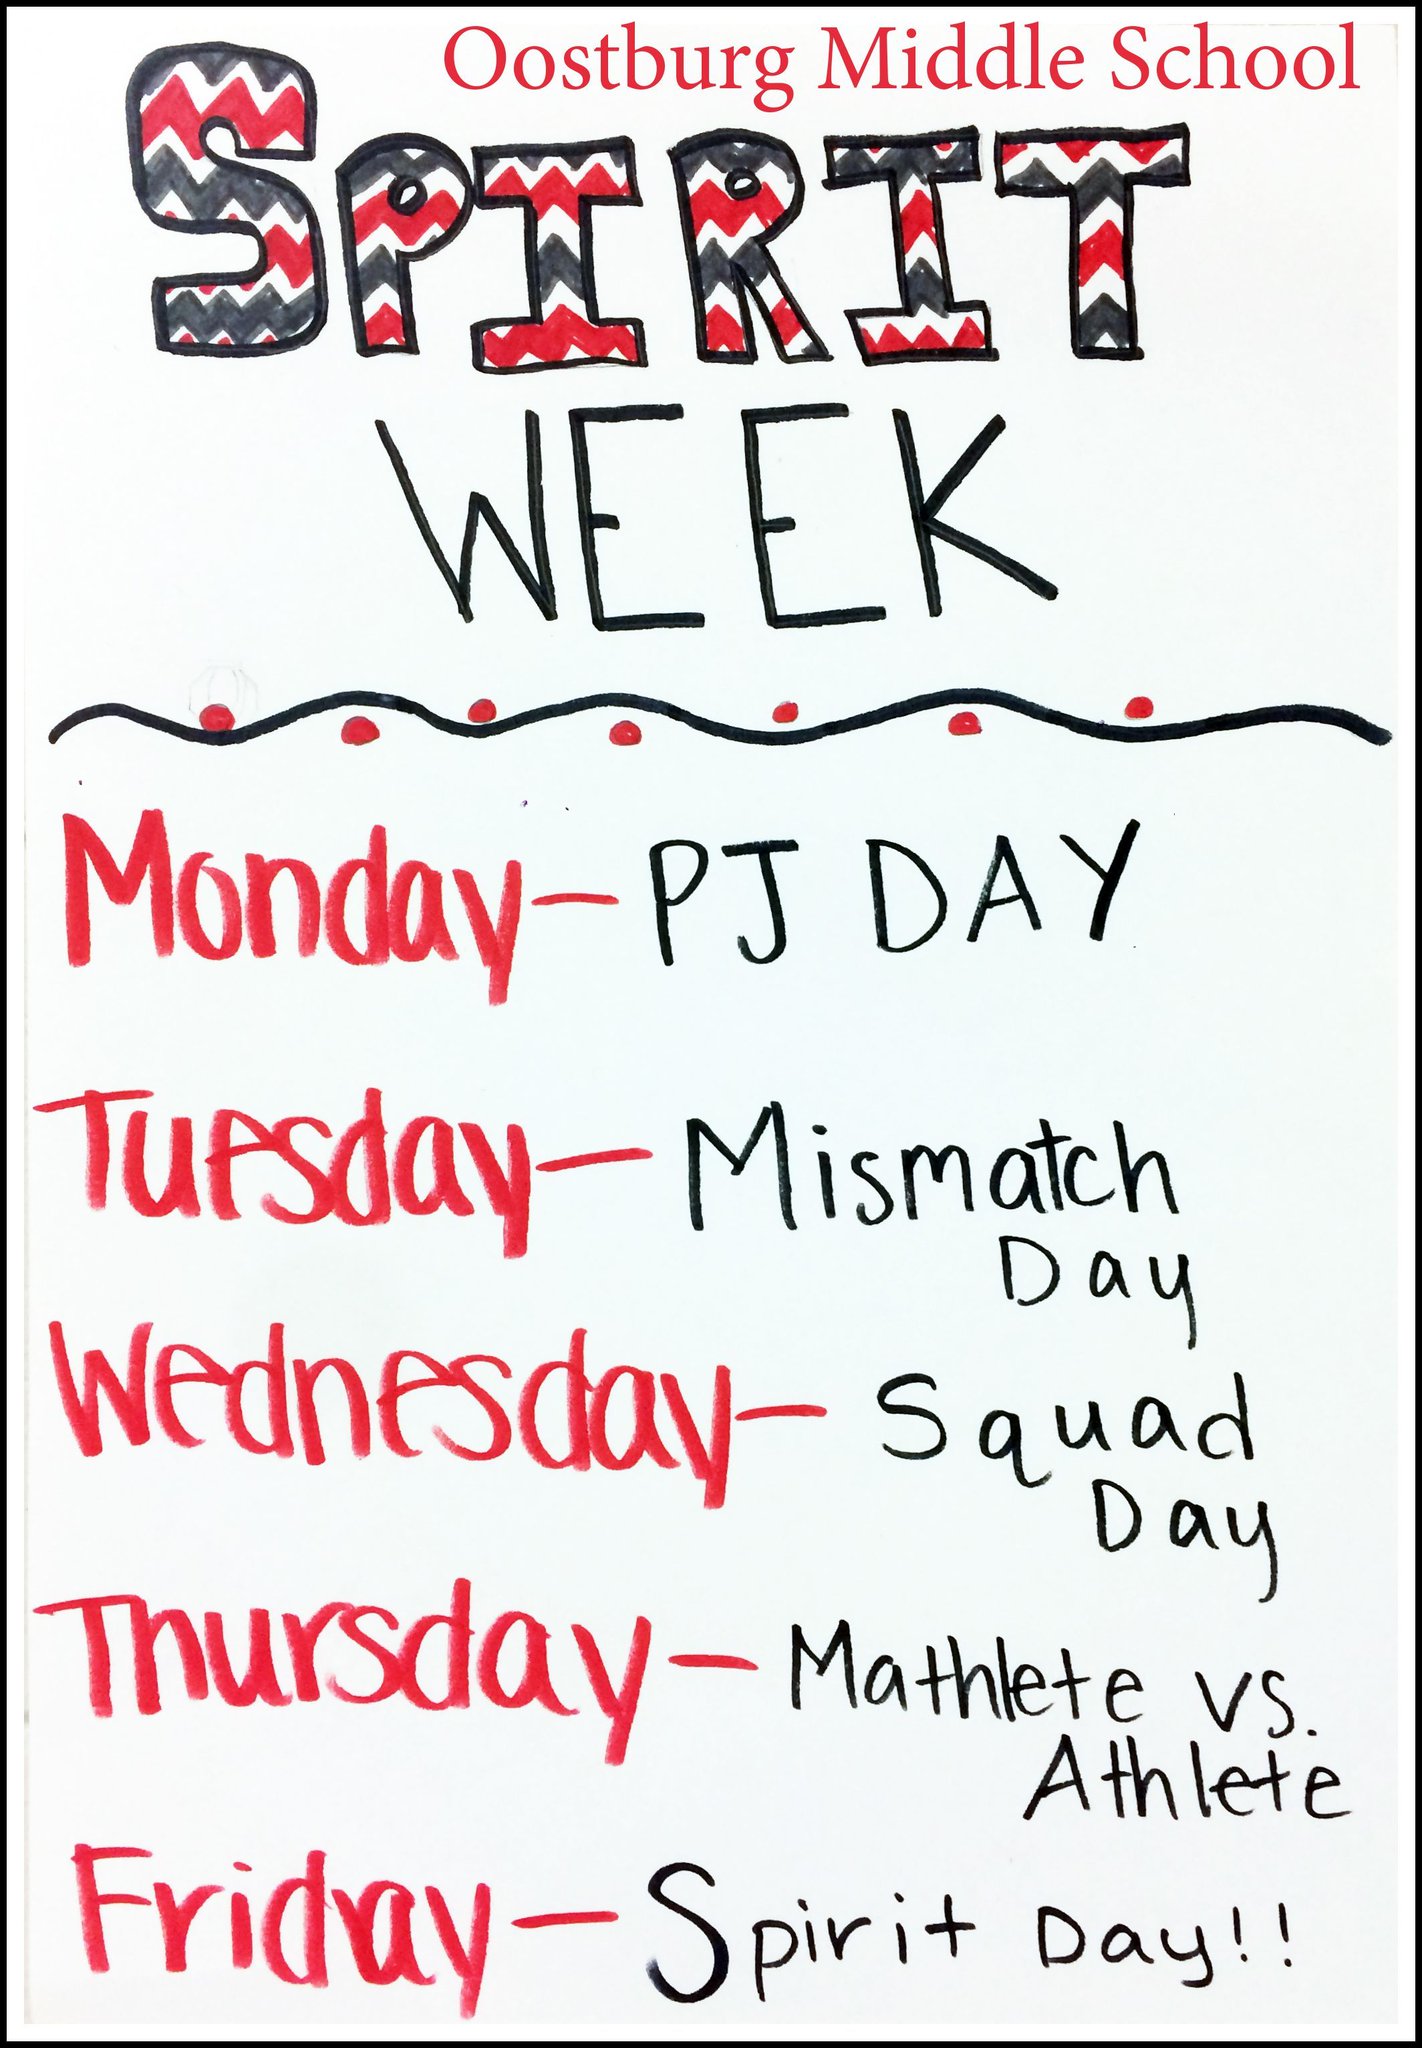 Oostburg Middle School
SPIRIT
WEEK
Monday - PJ DAY
Tuesday - Mismatch
Day
Wednesday - Squad
Day
Thursday - Mathlete vs.
Athlete
Friday - Spirit Day!!